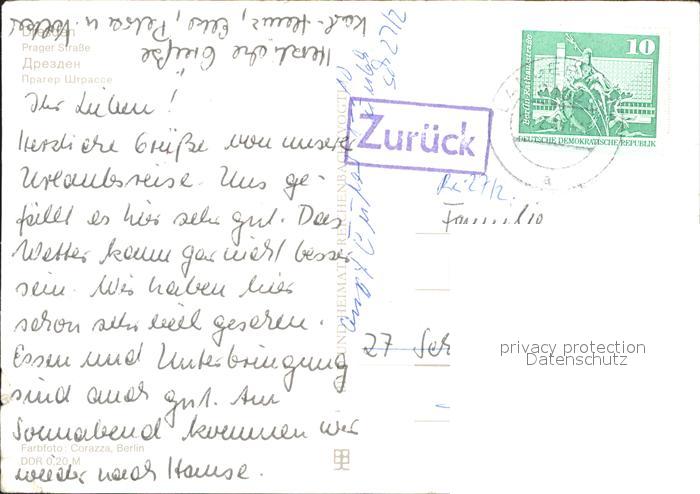 Dresden
Prager Straße
Дрезден
Прагер Штрассе
Ihr Lieben!
Herzliche Grüße von unserer
Urlaubsreise. Uns ge-
fällt es hier sehr gut. Das
Wetter kann gar nicht besser
sein. Wir haben hier
schon sehr viel gesehen.
Essen und Unterbringung
sind auch gut. Am
Sonnabend kommen wir
wieder nach Hause.
Herzliche Grüße
Karl-Heinz, Elke, Petra u.
Farbfoto: Corazza, Berlin
DDR 0,20 M
Zurück
10
Berlin-Rathausstraße
DEUTSCHE DEMOKRATISCHE REPUBLIK
Familie
27 Sch
privacy protection
Datenschutz